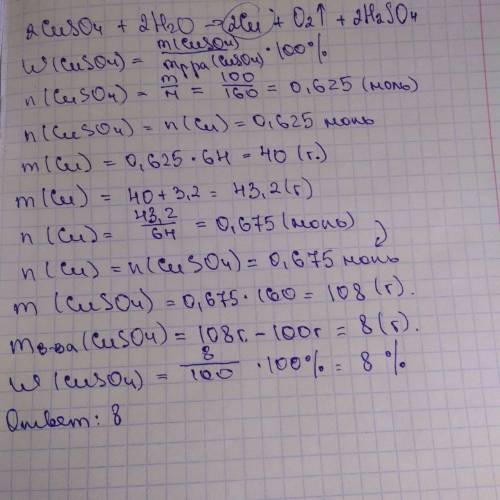 2CuSO4 + 2H2O → 2Cu + O2↑ + 2H2SO4
W(CuSO4) = m(CuSO4)/mр-ра(CuSO4) · 100%
n(CuSO4) = m/M = 100/160 = 0,625 (моль)
n(CuSO4) = n(Cu) = 0,625 моль
m(Cu) = 0,625 · 64 = 40 (г.)
m(Cu) = 40 + 3,2 = 43,2 (г)
n(Cu) = 43,2/64 = 0,675 (моль)
n(Cu) = n(CuSO4) = 0,675 моль
m (CuSO4) = 0,675 · 160 = 108 (г).
mв-ва (CuSO4) = 108г. - 100г = 8 (г).
W (CuSO4) = 8/100 · 100% = 8 %
Ответ: 8